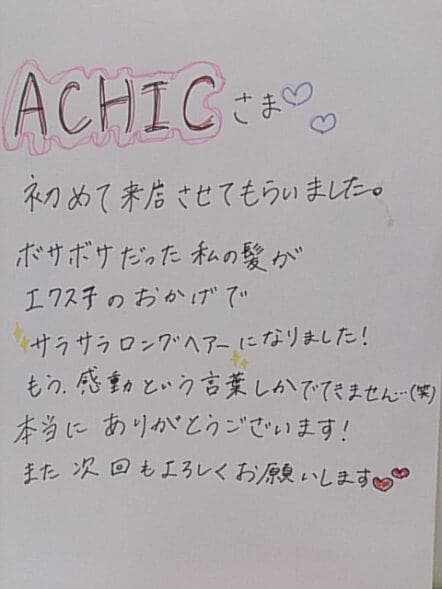 ACHICさま
初めて来店させてもらいました。
ボサボサだった私の髪が
エクステのおかげで
サラサラロングヘアーになりました！
もう、感動という言葉しかでてきません…(笑)
本当にありがとうございます！
また次回もよろしくお願いします